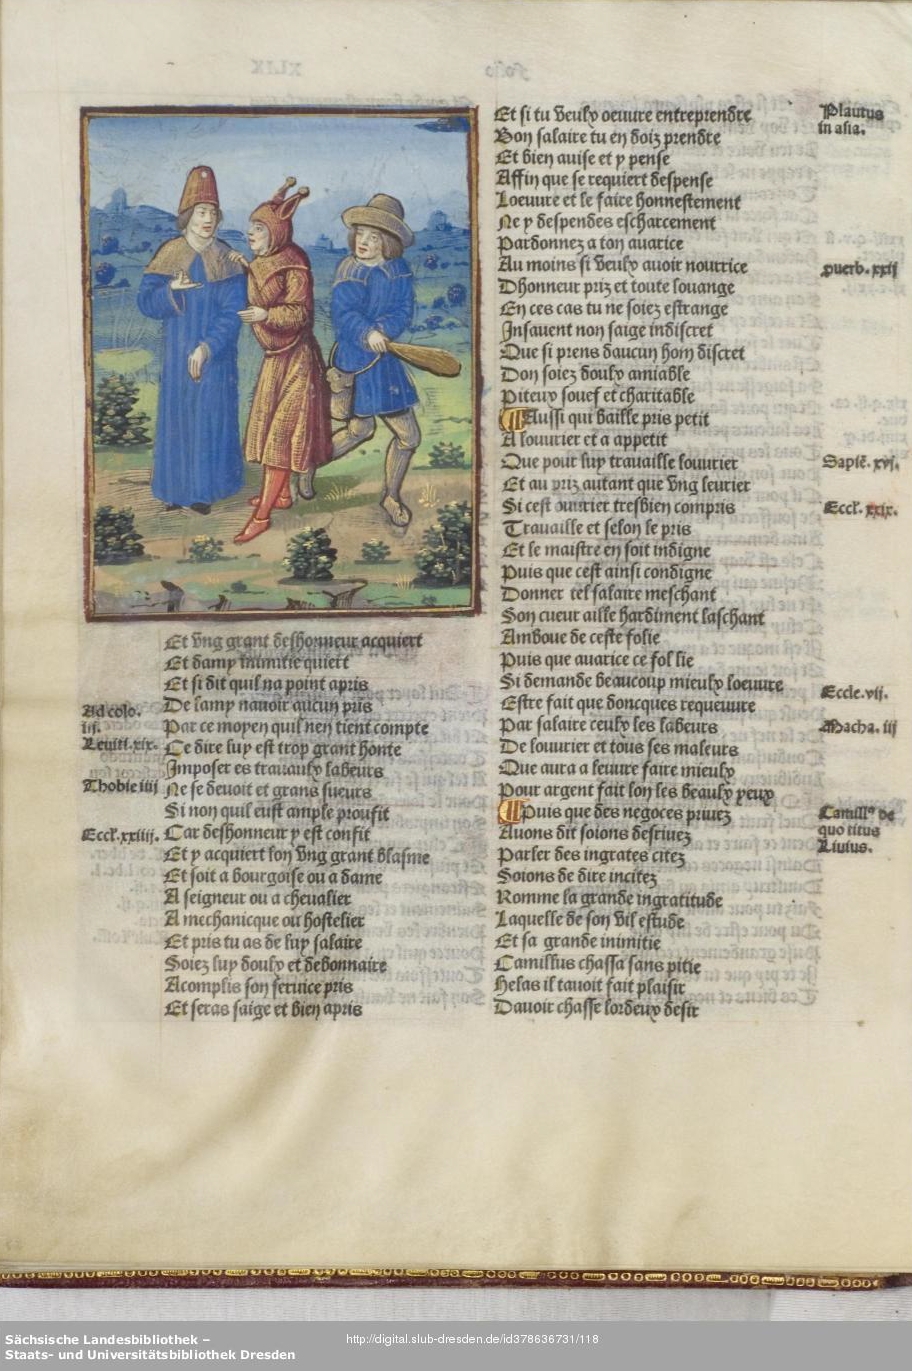 Et vng grant deshonneur acquiert
Et damp inimitie quiert
Et si dit quil na point apris
De lamp nauoir aucun pris
Par ce moyen quil nen tient compte
Ce dire luy est trop grant honte
Imposer es trauaulx labeurs
Ne se deuoit et grans sueurs
Si non quil eust ample proufit
Car deshonneur y est confit
Et y acquiert lon vng grant blasme
Et soit a bourgoise ou a dame
A seigneur ou a cheualier
A mechanicque ou hostelier
Et pris tu as de luy salaire
Soiez luy doulx et debonnaire
Acomplis son seruice pris
Et seras saige et bien apris
Ad colo.
iij.
Leuiti. xix.
Thobie iiij
Eccl'. xxiiij.
Et si tu veulx oeuure entreprendre
Bon salaire tu en doiz prendre
Et bien auise et y pense
Affin que se requiert despense
Loeuure et le faire honnestement
Ne y despendes escharcement
Pardonnez a ton auarice
Au moins si veulx auoir nourrice
Dhonneur priz et toute louange
En ces cas tu ne soiez estrange
Insauent non saige indiscret
Que si prens daucun hom discret
Don soiez doulx amiable
Piteux souef et charitable
¶ Aussi qui baille pris petit
A louurier et a appetit
Que pour luy trauaille louurier
Et au priz autant que vng leurier
Si cest ouurier tresbien compris
Trauaille et selon le pris
Et le maistre en soit indigne
Puis que cest ainsi condigne
Donner tel salaire meschant
Son cueur aille hardiment laschant
Amboue de ceste folie
Puis que auarice ce fol lie
Si demande beaucoup mieulx loeuure
Estre fait que doncques requeuure
Par salaire ceulx les labeurs
De louurier et tous ses maleurs
Que aura a leuure faire mieulx
Pour argent fait lon les beaulx yeux
¶ Puis que des negoces priuez
Auons dit soions desriuez
Parler des ingrates citez
Soions de dire incitez
Romme la grande ingratitude
Laquelle de son vil estude
Et sa grande inimitie
Camillus chassa sans pitie
Helas il tauoit fait plaisir
Dauoir chasse lordeux desir
Plautus
in asia.
puerb. xxij
Sapie. xvj.
Eccl'. xxix.
Eccle. vij.
Macha. iij
Camill' de
quo titus
Liuius.
Sächsische Landesbibliothek –
Staats- und Universitätsbibliothek Dresden
http://digital.slub-dresden.de/id378636731/118